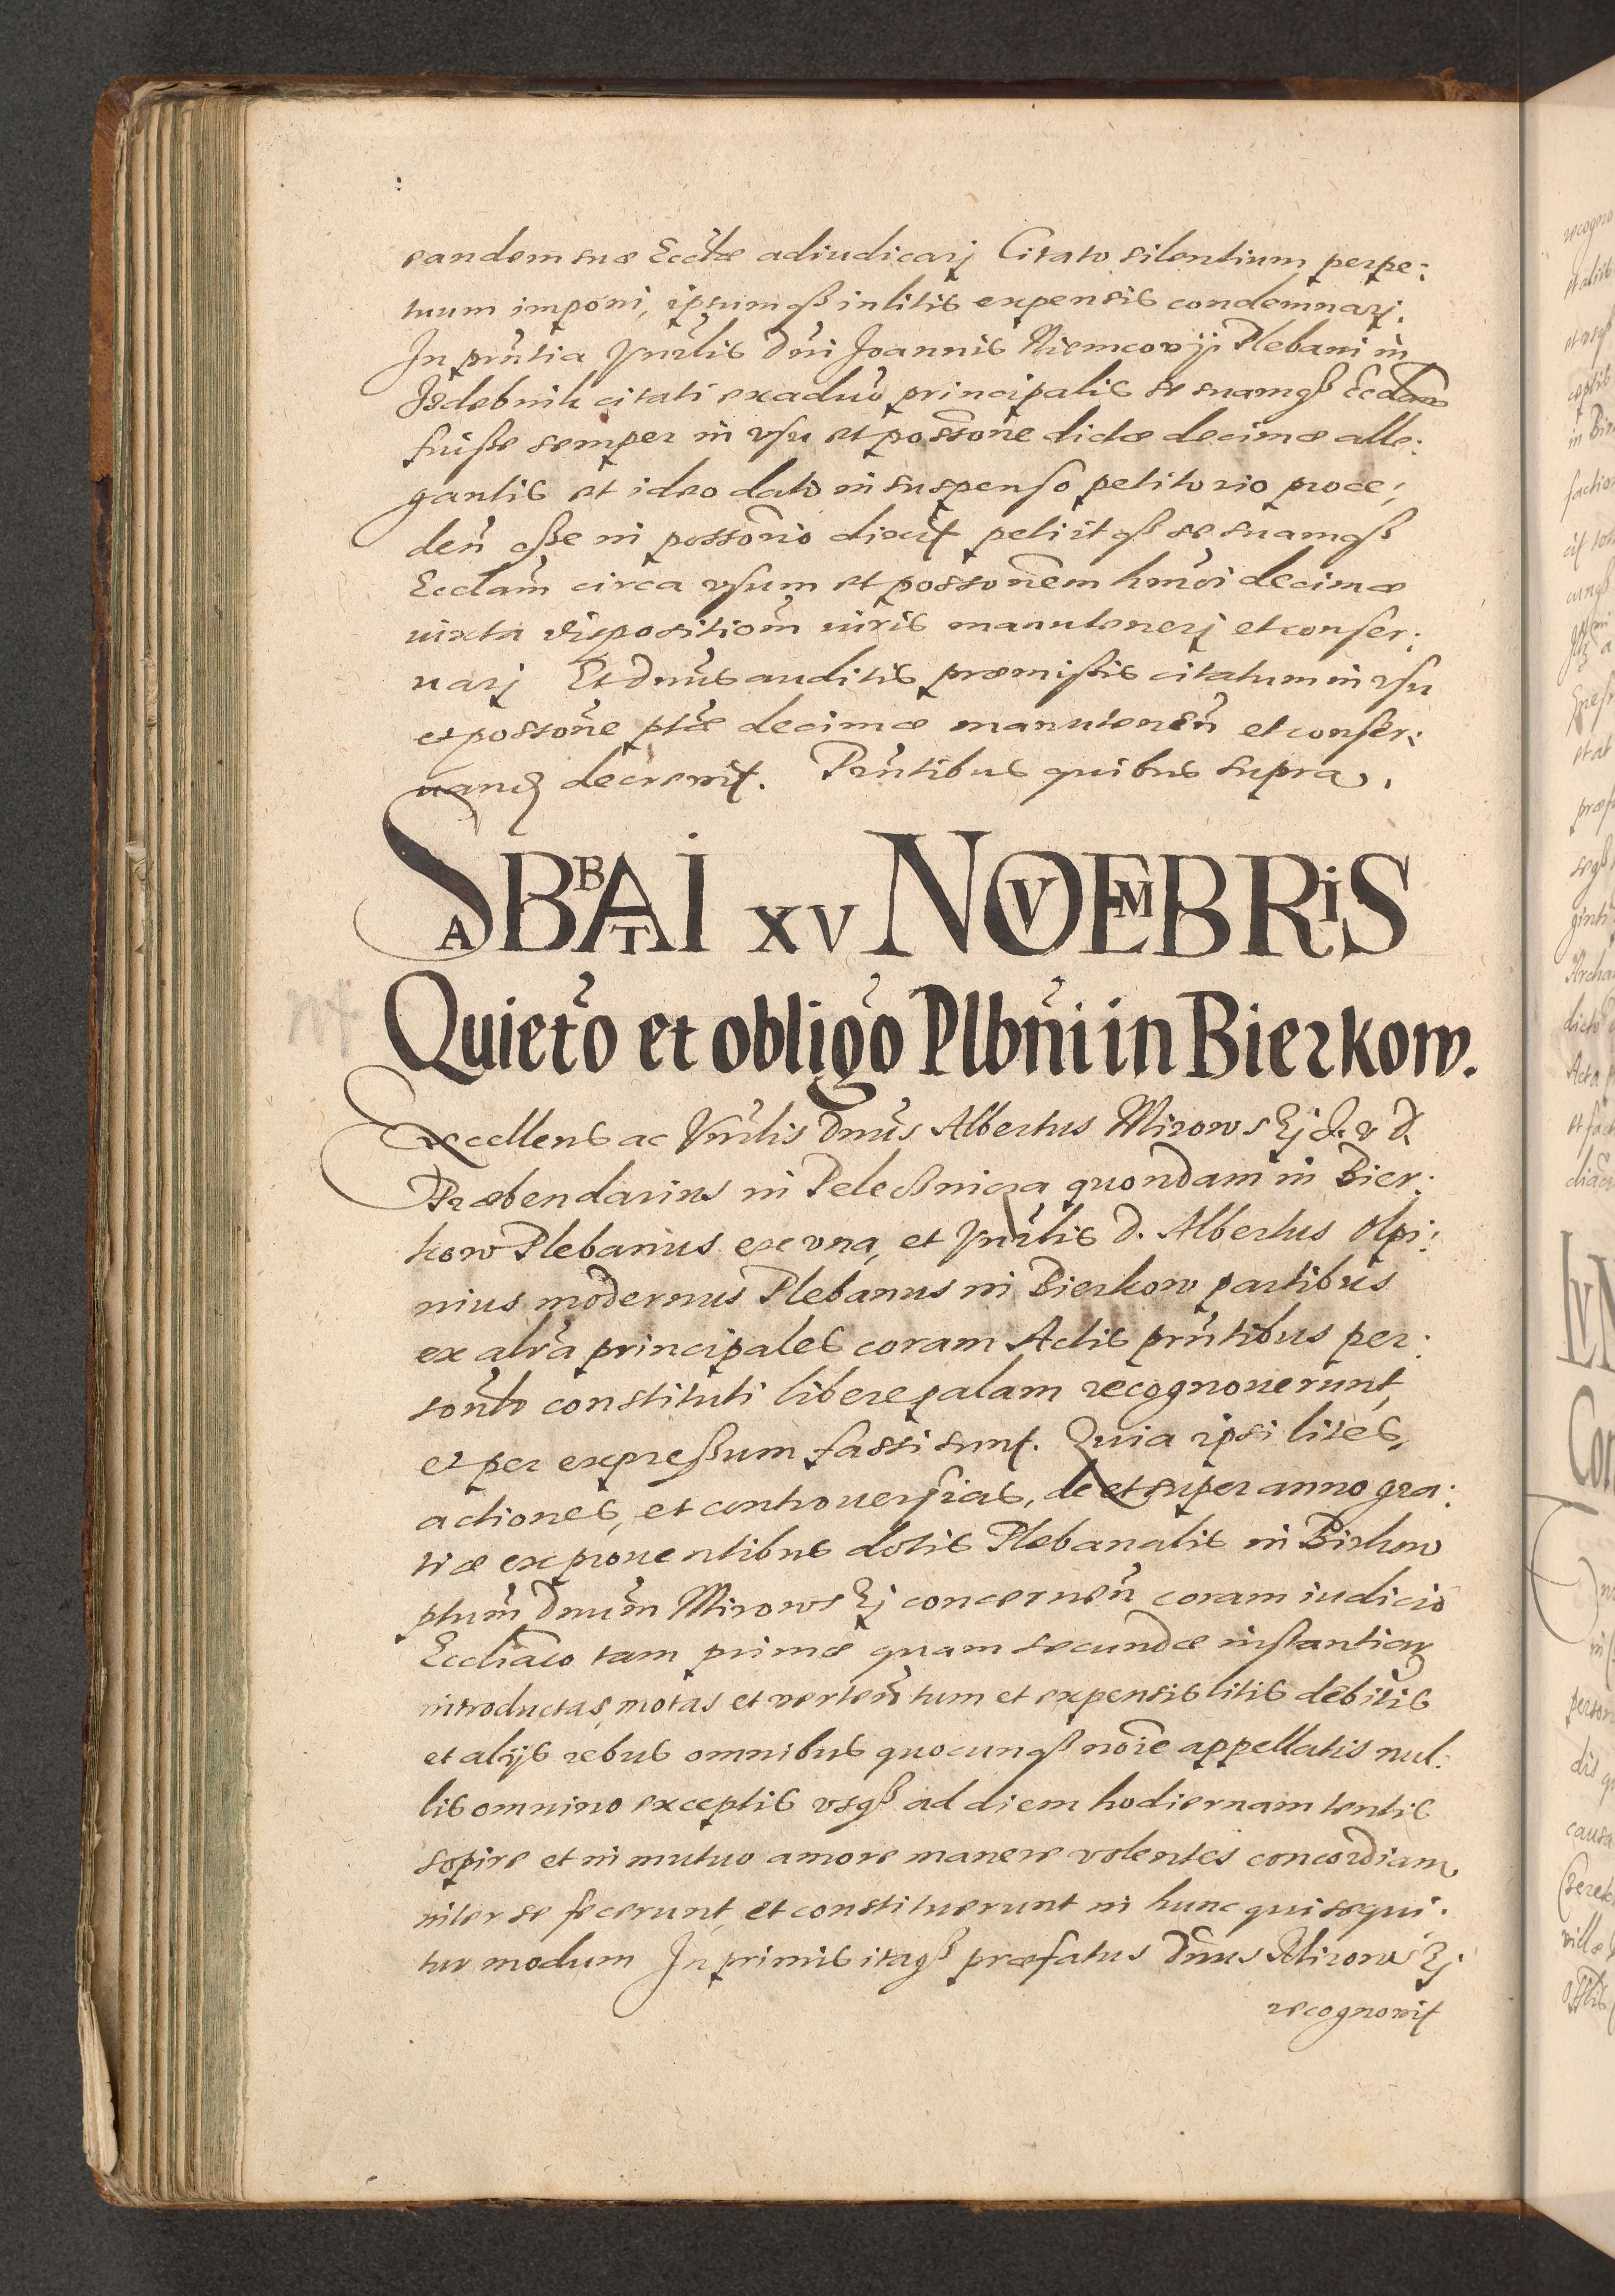 eandem suæ Eccłæ adiudicarj Citato silentium perpe:
tuum imponi, ipsumqȝ in litis expensis condemnarj.
In pñtia Vnrłis Dñi Joannis Niemcovÿ Plebani in
Isdebnik citati ex aduõ principalis se suamqȝ Eccłam
fuisse semper in vsu et possoñe dictæ decimæ alle:
gantis et ideo dato in suspenso petitorio proce:
deñ esse in possorio dixit petijtqȝ se suamqȝ
Eccłam circa vsum et possoñem hmõi decimæ
iuxta dispositiom̃ iuris manutenerj et conser:
uarj Et Dnũs auditis præmissis citatum in vsu
et possoñe ptæ decimæ manuteneñ et conser:
uanđ decreuit. Pñtibus quibus supra.
SABBATAI XV NOVEMBRIS
Quietõ et obligõ Plbñi in Bierkow.
Excellens ac Vnrłis Dnũs Albertus Mirowskj J. v. d.
Præbendarius in Peleßnicza quondam in Bier:
kow Plebanus ex vna, et Vnrłis D. Albertus Olpi:
nius modernus Plebanus in Bierkow partibus
ex altr̃a principales coram Actis pñtibus per:
sonłr constituti libere palam recognouerunt,
et per expressum fassi sunt. Quia ipsi lites,
actiones, et controuersias, de et super anno gra:
tiæ ex prouentibus dotis Plebanalis in Birkow
ptum̃ Dnum̃ Mirowskj concerneñ coram iudicio
Eccłiaco tam primæ quam secundæ instantiar
introductas, motas et verteñ tum et expensis litis debitis
et alijs rebus omnibus quocunqȝ noĩe appellatis nul:
lis omnino exceptis vsqȝ ad diem hodiernam tentis
sopire et in mutuo amore manere volentes concordiam
inter se fecerunt, et constituerunt in hunc qui sequi:
tur modum In primis itaqȝ præfatus Dnũs Mirowskj
recognouit